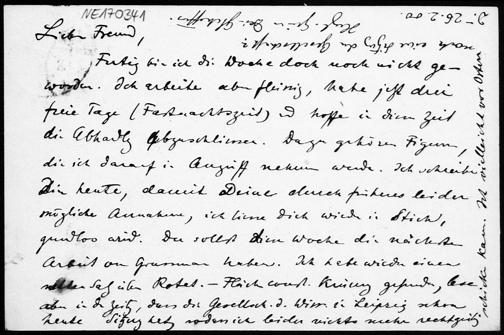 NE170341
D. 26.2.00
Lieber Freund,
Fertig bin ich die Woche doch noch nicht ge-
worden. Ich arbeite aber fleissig, habe jetzt drei
freie Tage (Fastnachtszeit) und hoffe in dieser Zeit
die Abhandlg abzuschliessen. Dazu gehören Figuren,
die ich darauf in Angriff nehmen werde. Ich schreibe
Dir heute, damit Deine durch früheres leider
mögliche Annahme, ich liesse dich wieder in Stich,
grundlos wird. Du sollst diese Woche die nächsten
Arbeit von Grassmann haben. Ich habe wieder einen
netten Satz über Rotat.-Fläch const. Krümg gefunden, lese
aber in der Zeitg, dass die Gesellsch. d. Wiss. in Leipzig schon
heute Sitzung hat, sodass ich leider nichts mehr rechtzeitig
schicken kann. Ist vielleicht vor Ostern
noch eine Sitzg der Gesellschaft?
Herzl. Grüsse Dein